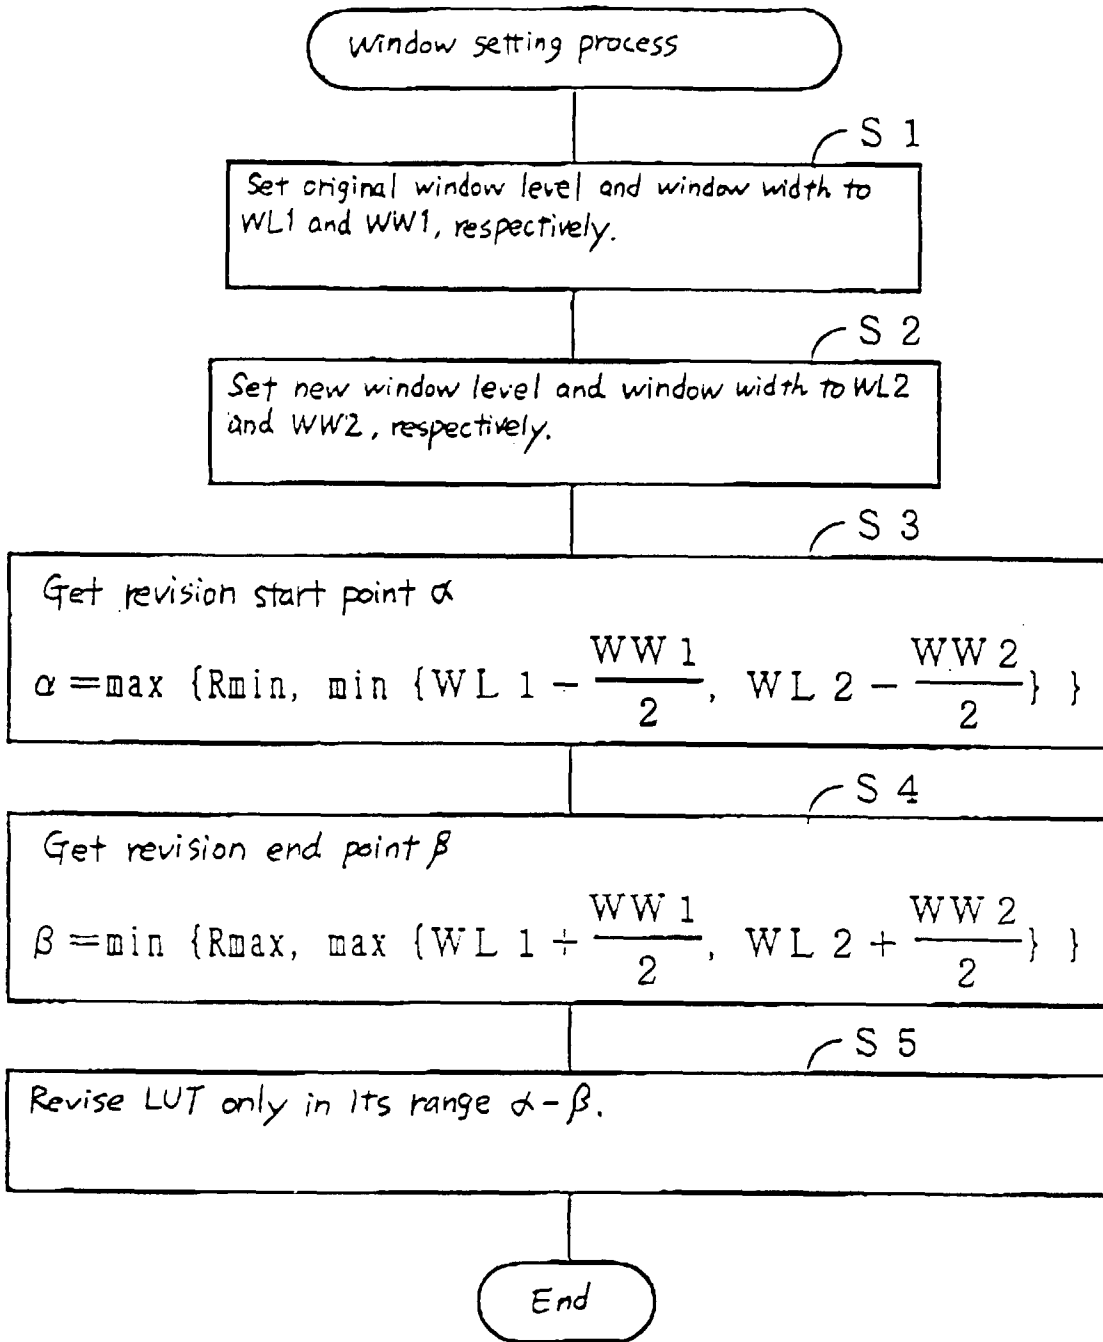 Window setting process
S 1
Set original window level and window width to
WL1 and WW1, respectively.
S 2
Set new window level and window width to WL2
and WW2, respectively.
S 3
Get revision start point α
α = max {Rmin, min {WL 1 − WW 1/2, WL 2 − WW 2/2} }
S 4
Get revision end point β
β = min {Rmax, max {WL 1 + WW 1/2, WL 2 + WW 2/2} }
S 5
Revise LUT only in its range α-β.
End